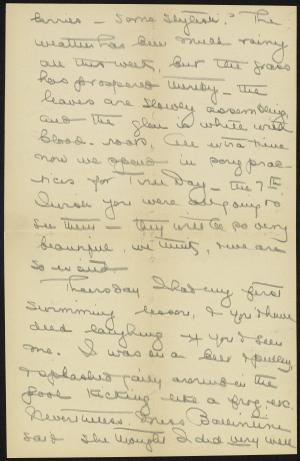 berries – Some Stylish! The
weather has been much rainy
all this week, but the grass
has prospered thereby – the
leaves are slowly assembling,
and the glen is white with
blood-roots. All extra time
now we spend in pony prac-
tices for Tree Day – the 7th
I wish you were all going to
see them – they will be so very
beautiful, we think, who are
so in it
Thursday I had my first
swimming lesson, & you'd have
died laughing if you'd seen
me. I was on a belt & pulley,
& splashed gaily around in the
pool kicking like a frog, etc.
Nevertheless, Miss Ballintine
said she thought I did very well